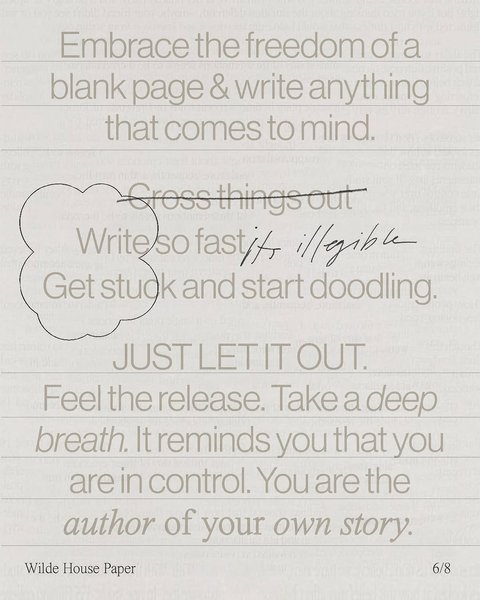 Embrace the freedom of a
blank page & write anything
that comes to mind.
Cross things out
Write so fast its illegible
Get stuck and start doodling.
JUST LET IT OUT.
Feel the release. Take a deep
breath. It reminds you that you
are in control. You are the
author of your own story.
Wilde House Paper
6/8